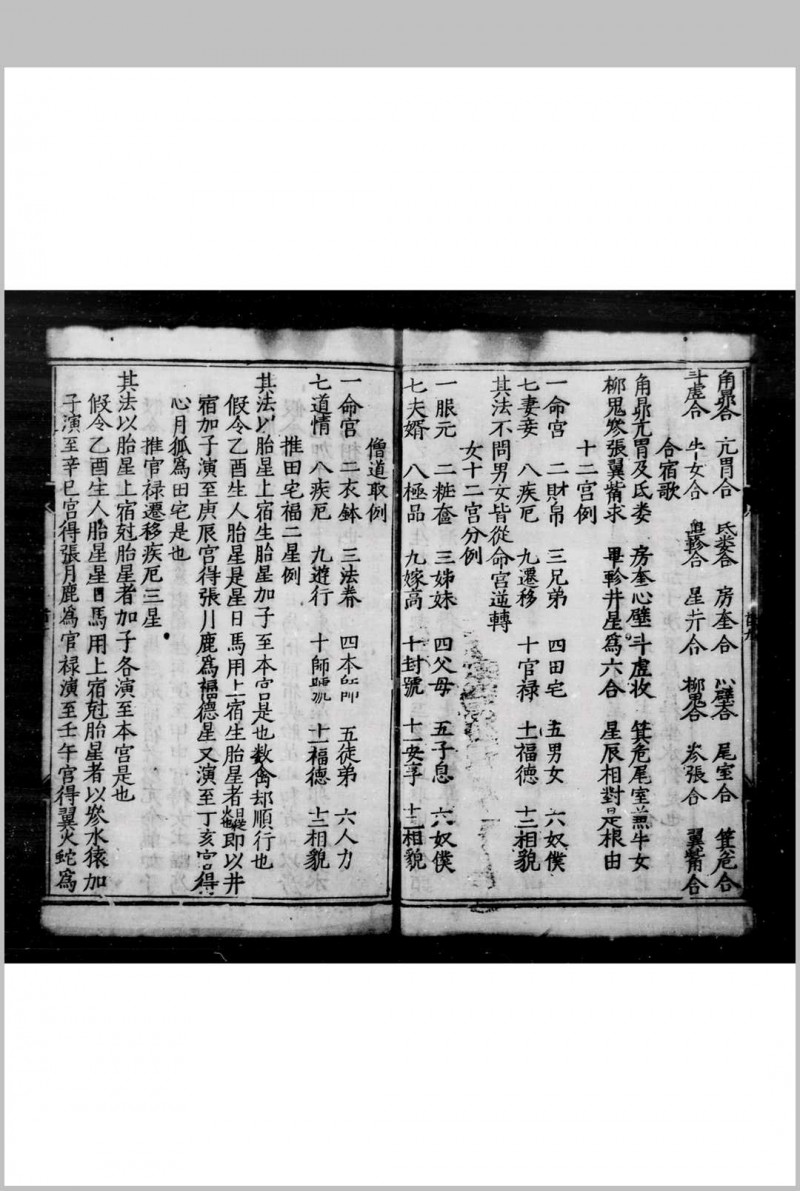 角昴合　亢胃合　氐婁合　房奎合　心壁合　尾室合　箕危合
斗虛合　牛女合　畢軫合　星井合　柳鬼合　參張合　翼觜合
合宿歌
角昴亢胃及氐婁　房奎心壁斗虛收　箕危尾室並牛女
柳鬼參張翼觜求　畢軫井星為六合　星辰相對是根由
十二宮例
一命宮　二財帛　三兄弟　四田宅　五男女　六奴僕
七妻妾　八疾厄　九遷移　十官禄　十一福德　十二相貌
其法不問男女皆從命宮逆轉
女十二宮分例
一服元　二粧奩　三姊妹　四父母　五子息　六奴僕
七夫婿　八極品　九嫁高　十封號　十一安享　十二相貌
僧道取例
一命宮　二衣鉢　三法眷　四本師　五徒弟　六人力
七道情　八疾厄　九遊行　十師號　十一福德　十二相貌
推田宅福二星例
其法以胎星上宿生胎星加子至本宮是也数禽却順行也
假令乙酉生人胎星是星日馬用上宿生胎星者即以井
宿加子演至庚辰宮得張月鹿為福德星又演至丁亥宮得
心月狐為田宅是也
推官禄遷移疾厄三星
其法以胎星上宿尅胎星者加子各演至本宮是也
假令乙酉生人胎星星日馬用上宿尅胎星者以參水猿加
子演至辛巳宮得張月鹿為官禄演至壬午宮得翼火蛇為